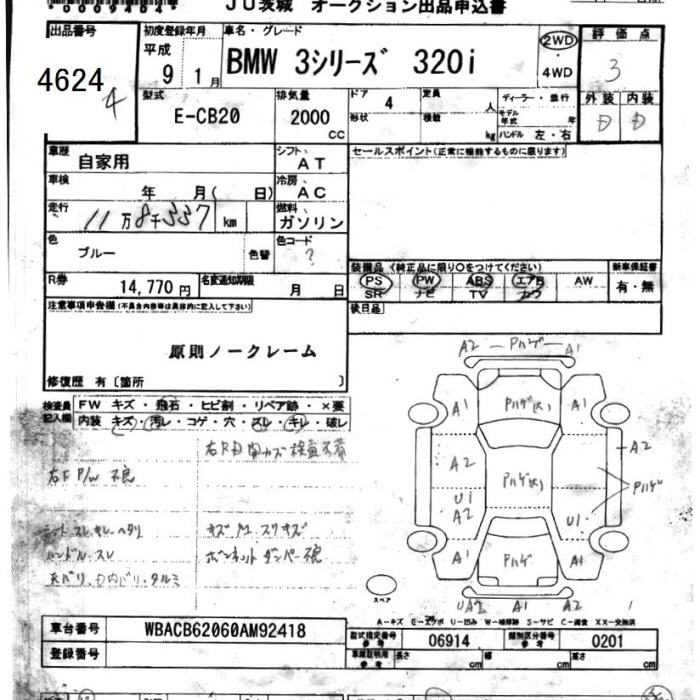 JU茨城 オークション出品申込書
出品番号 初度登録年月 車名・グレード 2WD 評価点
4624 平成 9年1月 BMW 3シリーズ 320i ・4WD 3
4 型式 排気量 ドア 4 定員 人 ディーラー・並行 外装 内装
E-CB20 2000CC 形状 積載 kg モデル年式 年 ハンドル 左・右 D D
車歴 自家用 シフト AT セールスポイント(正常に機能するものに限ります)
車検 年 月( 日) 冷房 AC
走行 11万8千337km 燃料 ガソリン
色 ブルー 色替 色コード ? 装備品(純正品に限り○をつけてください) 新車保証書
R券 14,770円 名変通知期限 月 日 PS PW ABS エアB AW 有・無
SR ナビ TV カワ
注意事項申告欄(不具合内容等は具体的に記入して下さい) 後日品
原則ノークレーム
修復歴 有〔箇所 〕
検査員 FW キズ・飛石・ヒビ割・リペア跡・×要
記入欄 内装 キズ・汚レ・コゲ・穴・スレ・キレ・破レ
右F P/W 不良
シート、スレ、キレ、ヘタリ
ハンドル、スレ ボンネットダンパー不良
天バリ、D内バリ、タルミ
A2 Pハゲ A1
A1 Pハゲ(大) A1
A2 Pハゲ(大) A2
U1 Pハゲ
A2 U1
A1 Pハゲ A1
スペア A1 A2
A-キズ E-エクボ U-凹み W-補修跡 S-サビ C-腐食 XX-交換済
車台番号 WBACB62060AM92418 型式指定番号 参考 06914 類別区分番号 参考 0201
登録番号 車庫証明用 参考 長さ cm 幅 cm 高さ cm